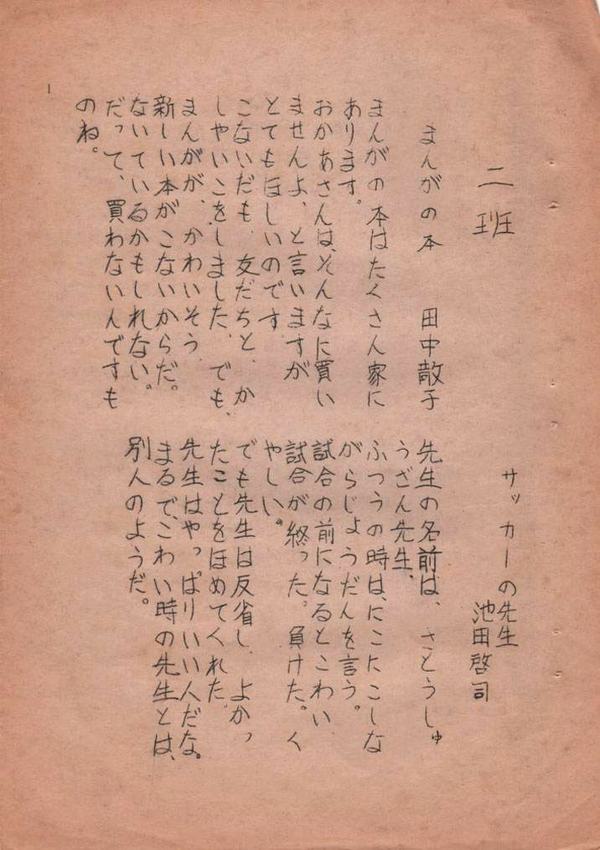 二班
まんがの本　田中敬子
まんがの本はたくさん家に
あります。
おかあさんは、そんなに買い
ませんよ、と言いますが
とてもほしいのです
こないだも、友だちと、か
しゃいこをしました、でも、
まんがが、かわいそう、
新しい本がこないからだ。
ないているかもしれない。
だって、買わないんですも
のね。
サッカーの先生
池田啓司
先生の名前は、さとうしゅ
うざん先生、
ふつうの時は、にこにこしな
がらじょうだんを言う。
試合の前になるとこわい、
試合が終った。負けた。く
やしい。
でも先生は反省し、よかっ
たことをほめてくれた。
先生はやっぱりいい人だな。
まるで、こわい時の先生とは、
別人のようだ。